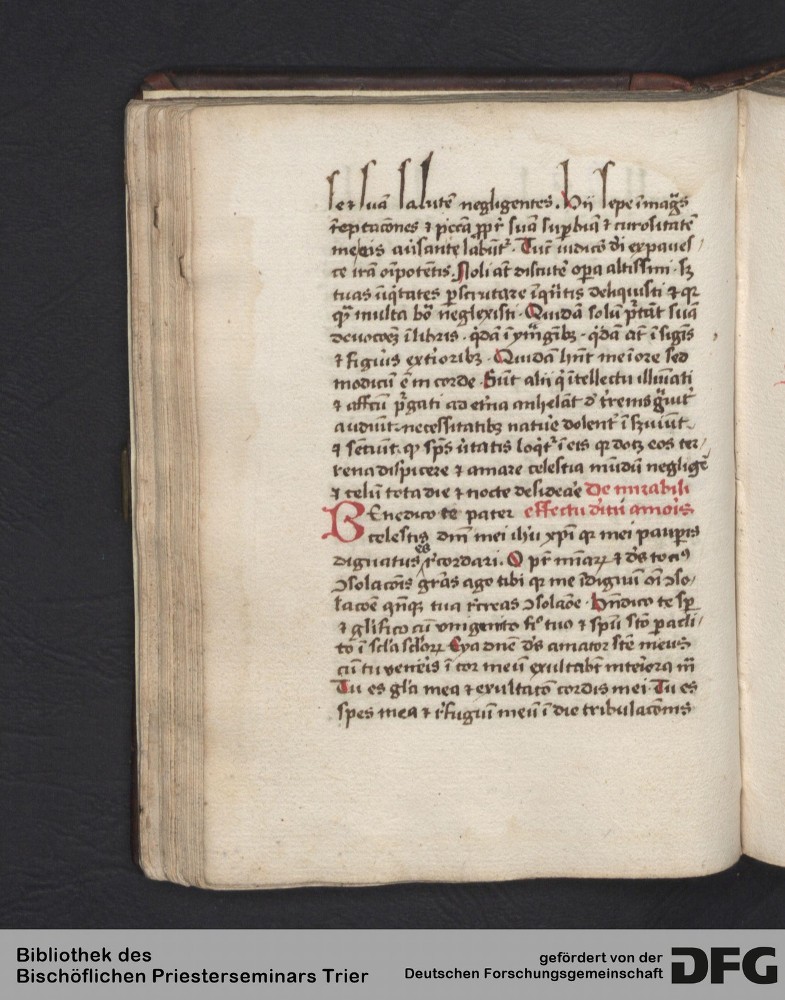 se et suā salutē negligentes. Hij sepe ī mag̃s
tēptacōnes ⁊ pctā ꝓpt̄ suā supbiā ⁊ curositatē
labūt᷑. Tuc̄ iudicō di expaues
ce irā oīpotētis. Noli at̄ discut̄e oꝑa altissimi. sꝫ
tuas īiq̄tates ꝑscrutare ī q̄ntis deliquisti ⁊ qr
q̄ multa bō neglexisti. Quidā solū portāt suā
deuocōeꝫ ī libris. q̇dā ī ymagībꝫ. q̇dā at̄ ī sigīs
⁊ figuris extioribꝫ. Quidā hn̄t me ī ore sed
modicū ē in corde. Sūt alij q̇ ītellectu illuīati
⁊ affcū pᵉgati ad et̄na anhelāt d̄ t̄renis g̈uit᷑
audiūt. necessitatibꝫ nature dolent᷑ ī s̄uiūt.
⁊ sēciūt. qͥ sp̄s ūitatis loq̄t᷑ ī eis qr docꝫ eos ter
rena dispicere ⁊ amare celestia mūdū negligē
⁊ celū tota die ⁊ nocte desiderāe De mirabili
BEnedico te pater effectu diuī amoris
celestis dn̄i mei ih̄u xp̄i qr mei pauꝑis
dignatus es r̄cordari. O pr̄ mīaꝝ ⁊ dˢ tociꝰ
ↄsolacōis grās ago tibi qr me īdignū oī ↄso
lacōe qn̄qꝫ tua r̄creas ↄsolacōe. Bn̄dico te sꝑ
⁊ gl̄ifico cū vnigenito fiᵒ tuo ⁊ sp̄ū sc̄o ꝑacli
to ī sc̄la sc̄loꝝ Eya dn̄e dˢ amator sc̄e meus
cū tu veneris ī cor meū exultabt̄ interiora m̄
Tu es gl̄a mea ⁊ exultacō cordis mei. Tu es
spes mea ⁊ r̄fugiū meū ī die tribulacōnis
Bibliothek des
Bischöflichen Priesterseminars Trier
gefördert von der
Deutschen Forschungsgemeinschaft
DFG